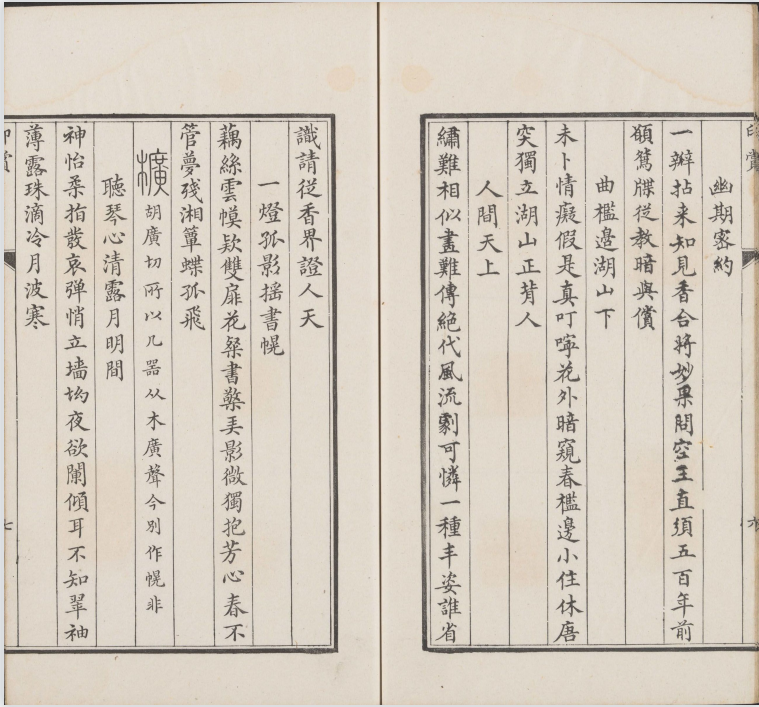 幽期密約
一瓣拈来知見香合將妙果問空王直須五百年前
額篤牒従教暗與償
曲檻邉湖山下
未卜情癡假是真叮嚀花外暗窺春檻邉小住休唐
突獨立湖山正背人
人間天上
繡難相似畫難傳絶代風流劇可憐一種丰姿誰省
識請従香界證人天
一燈孤影揺書幌
藕絲雲幙欵雙扉花粲書檠美影微獨抱芳心春不
管夢殘湘簟蝶孤飛
櫎胡廣切所以几器从木廣聲今别作幌非
聴琴心清露月明間
神怡柔指發哀弹悄立墙坳夜欲闌傾耳不知翠袖
薄露珠滴冷月波寒
七